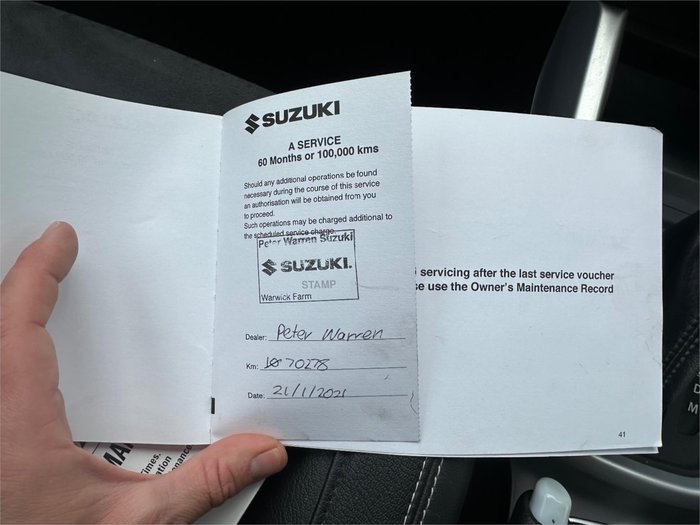 SUZUKI
A SERVICE
60 Months or 100,000 kms
Should any additional operations be found
necessary during the course of this service
an authorisation will be obtained from you
to proceed.
Such operations may be charged additional to
the scheduled service charge.
Peter Warren Suzuki
SUZUKI.
STAMP
Warwick Farm
Dealer: Peter Warren
Km: 70278
Date: 21/1/2021
servicing after the last service voucher
use the Owner's Maintenance Record
41
MA
Times.